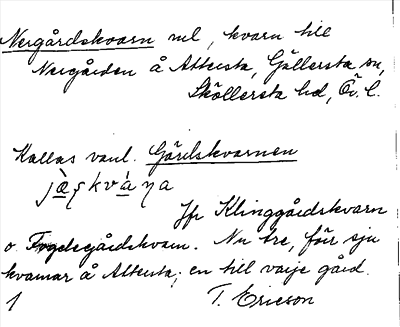 Nergårdskvarn rul, kvarn till
Nergården å Attersta, Gällersta sn,
Sköllersta hd, Ör. l.
Kallas vanl. Gärdskvarnen
Jfr Klinggårdskvarn
o. Fogdegårdskvarn. Nu tre, förr sju
kvarnar å Attersta; en till varje gård.
1 T. Ericson